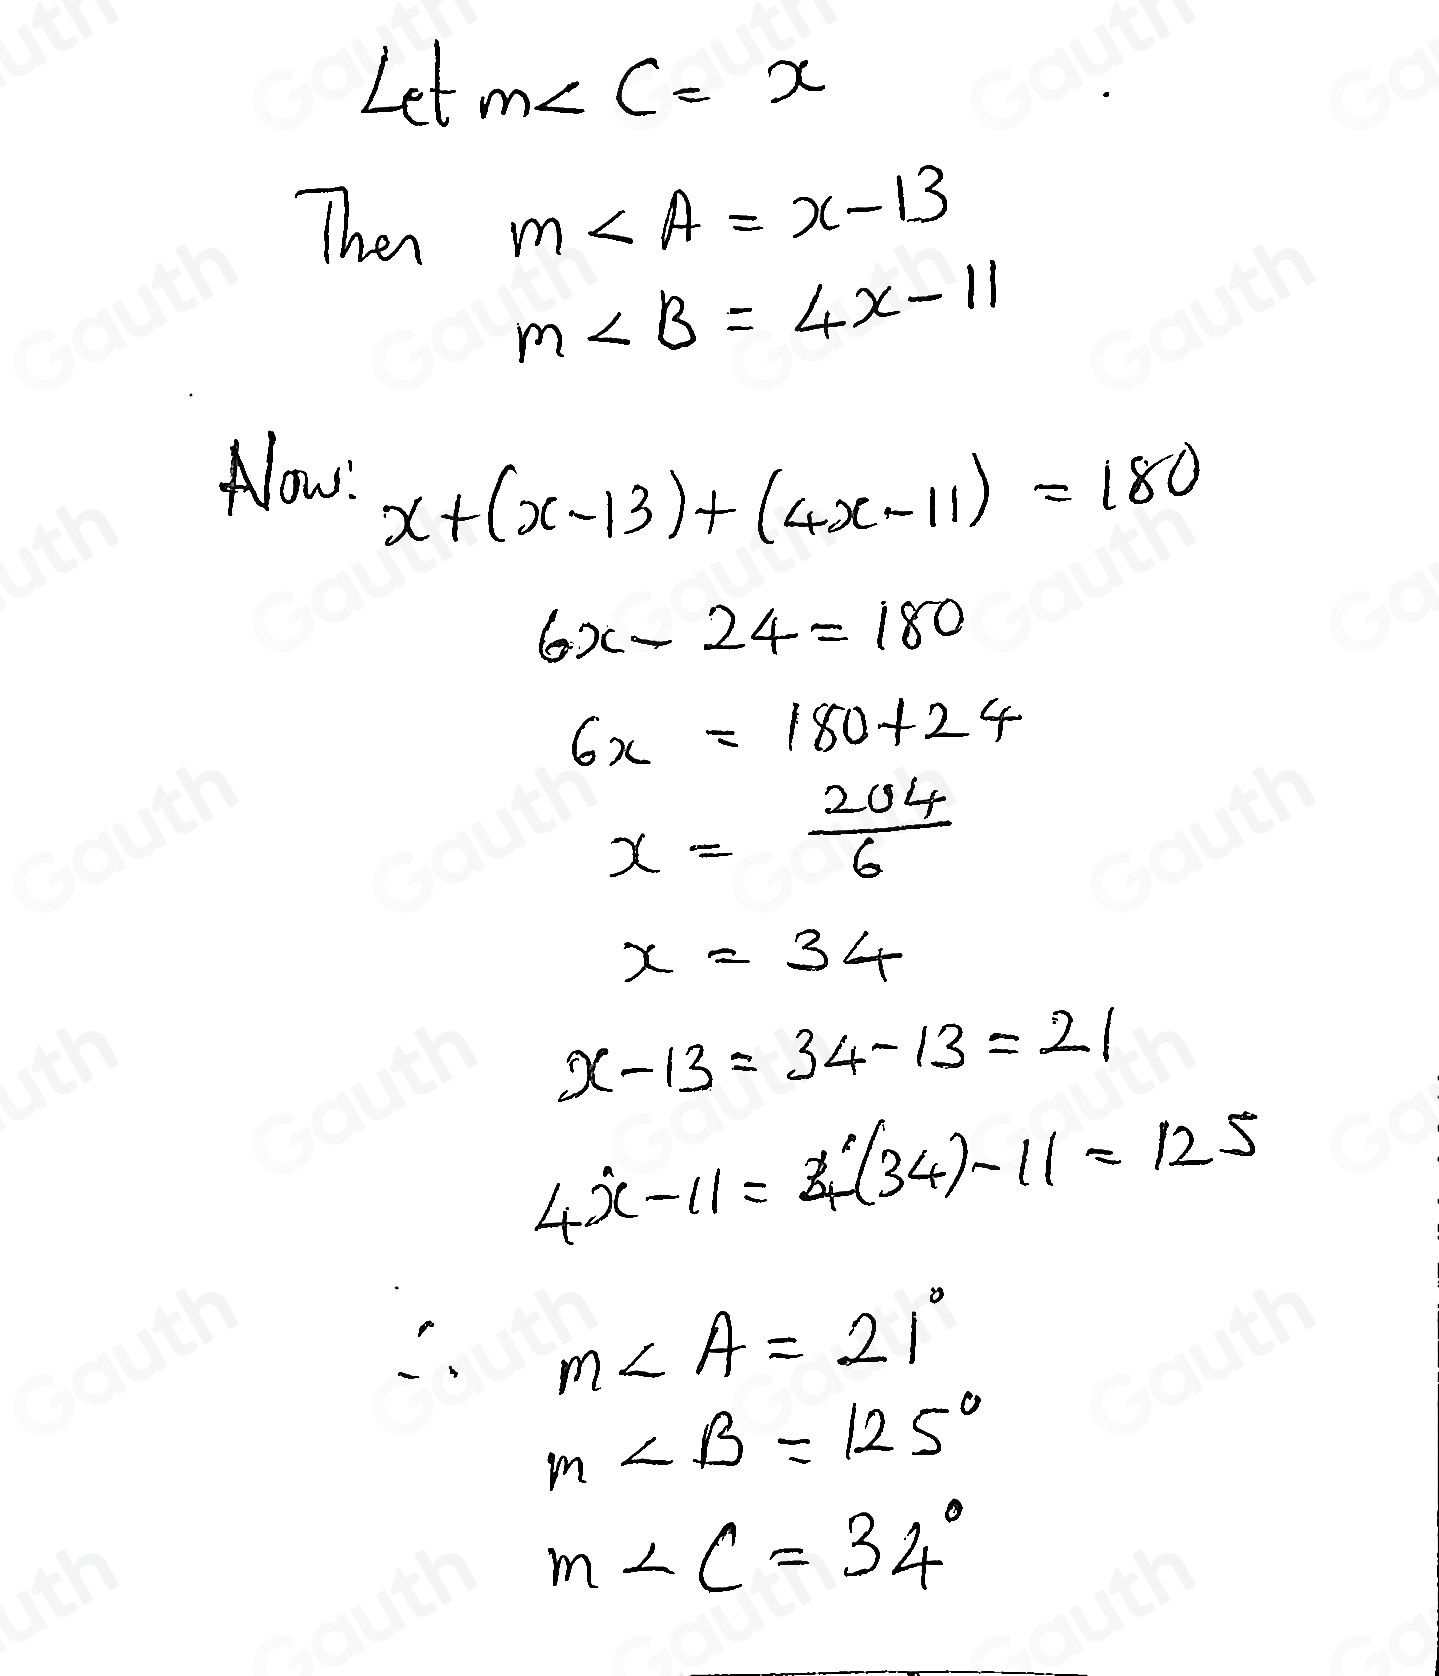 Let m< C = x
Then m < A = x - 13
m < B = 4x - 11
Now: x + (x - 13) + (4x - 11) = 180
6x - 24 = 180
6x = 180 + 24
x = 204/6
x = 34
x - 13 = 34 - 13 = 21
4x - 11 = 4(34) - 11 = 125
∴ m < A = 21°
m < B = 125°
m < C = 34°